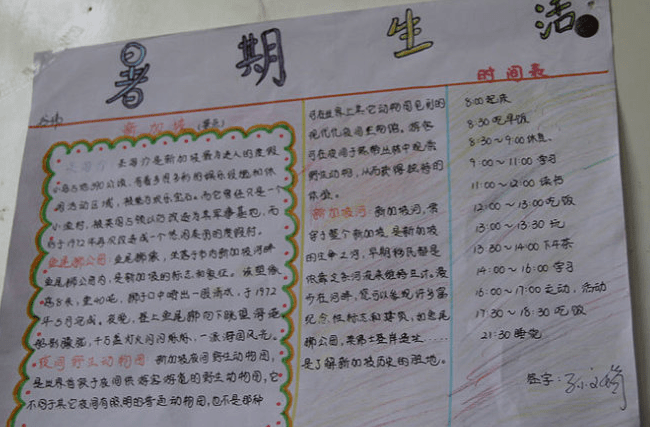 暑期生活
新加坡(景点)
圣淘沙是新加坡最为迷人的度假
小岛占地390公顷,有着多姿多彩的娱乐设施和休
闲活动区域,被誉为欢乐宝石。而它曾经只是一个
小渔村,被英国占领以后改造为其军事基地,而
后于1972年再次改造成一个悠闲美丽的度假村。
鱼尾狮公园 鱼尾狮像,坐落于市内新加坡河畔
鱼尾狮公园内,是新加坡的标志和象征。该塑像
高8米,重40吨,狮子口中喷出一股清水,于1972
年5月完成。夜晚,登上鱼尾狮勿下眺望
船影骚弥,千万盏灯火闪闪烁烁,一派海国风光。
夜间野生动物园 新加坡夜间野生动物园,
是世界首家于夜间供游客游览的野生动物园,它
不同于其它夜间有照明的普通动物园,也不是那种
可在世界上其它动物园见到的
现代化夜间生物馆。游客
可在夜间于热带丛林中观察
野生动物,从而获得独特的
体验。
新加坡河 新加坡河,贯
穿了整个新加坡,是新加坡
的生命之河,早期移民都是
依靠这条河流来维持生计。漫
步在河畔,您可以参观许多留
纪念性标志和建筑,如鱼尾
狮公园,莱佛士登岸遗址……
是了解新加坡历史的胜地。
时间表
8:00起床
8:30吃早饭
8:30~9:00休息.
9:00~11:00学习
11:00~12:00读书
12:00~13:00吃饭
13:00~13:30玩
13:30~14:00下午茶
14:00~16:00学习
16:00~17:00运动,活动
17:30~18:30吃饭
21:30睡觉
签字: